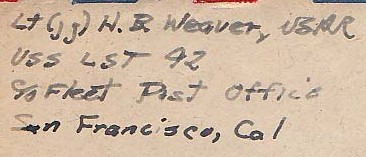 Lt (jg) H. B. Weaver, USNR
USS LST 42
c/o Fleet Post Office
San Francisco, Cal